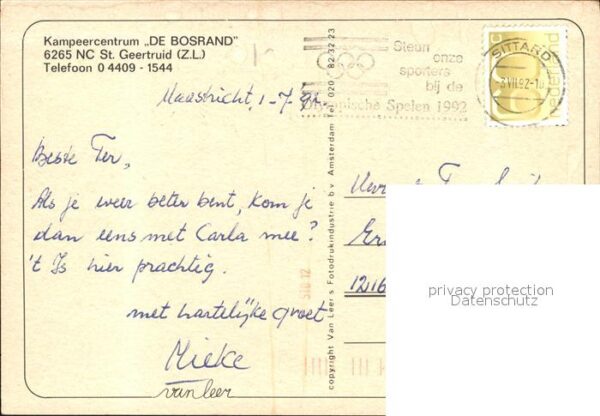 Kampeercentrum „DE BOSRAND"
6265 NC St. Geertruid (Z.L.)
Telefoon 0 4409 - 1544
Steun
onze
sporters
bij de
Olympische Spelen 1992
SITTARD
nederland
Maastricht, 1-7-92
Beste Ter,
Als je weer beter bent, kom je
dan eens met Carla mee?
't Is hier prachtig.
met hartelijke groet
Mieke
van Leer
copyright Van Leer's Fotodrukindustrie b.v. Amsterdam Tel. 020 - 82 32 23
1216
privacy protection
Datenschutz